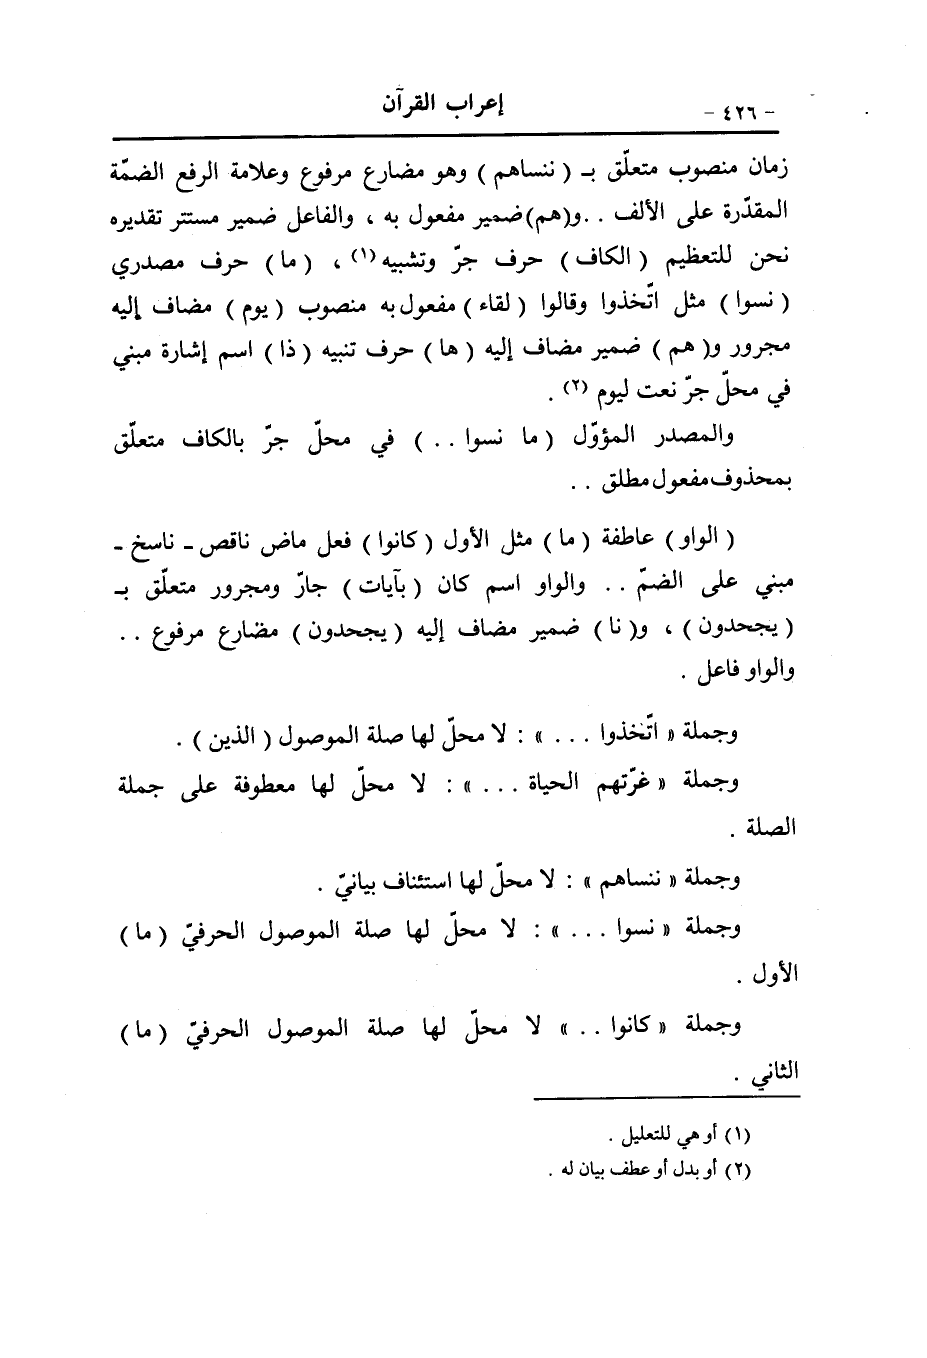 - ٤٢٦ -
إعراب القرآن
زمان منصوب متعلّق بـ ( ننساهم ) وهو مضارع مرفوع وعلامة الرفع الضمّة
المقدّرة على الألف . .و(هم)ضمير مفعول به ، والفاعل ضمير مستتر تقديره
نحن للتعظيم ( الكاف ) حرف جرّ وتشبيه (١) ، ( ما ) حرف مصدري
( نسوا ) مثل اتّخذوا وقالوا ( لقاء ) مفعول به منصوب ( يوم ) مضاف إليه
مجرور و( هم ) ضمير مضاف إليه ( ها ) حرف تنبيه ( ذا ) اسم إشارة مبني
في محلّ جرّ نعت ليوم (٢) .
والمصدر المؤوّل ( ما نسوا . . ) في محلّ جرّ بالكاف متعلّق
بمحذوف مفعول مطلق . .
( الواو ) عاطفة ( ما ) مثل الأول ( كانوا ) فعل ماض ناقص ـ ناسخ ـ
مبني على الضمّ . . والواو اسم كان ( بآيات ) جارّ ومجرور متعلّق بـ
( يجحدون ) ، و( نا ) ضمير مضاف إليه ( يجحدون ) مضارع مرفوع . .
والواو فاعل .
وجملة « اتّخذوا . . . » : لا محلّ لها صلة الموصول ( الذين ) .
وجملة « غرّتهم الحياة . . . » : لا محلّ لها معطوفة على جملة
الصلة .
وجملة « ننساهم » : لا محلّ لها استئناف بيانيّ .
وجملة « نسوا . . . » : لا محلّ لها صلة الموصول الحرفيّ ( ما )
الأول .
وجملة « كانوا . . » لا محلّ لها صلة الموصول الحرفيّ ( ما )
الثاني .
(١) أو هي للتعليل .
(٢) أو بدل أو عطف بيان له .